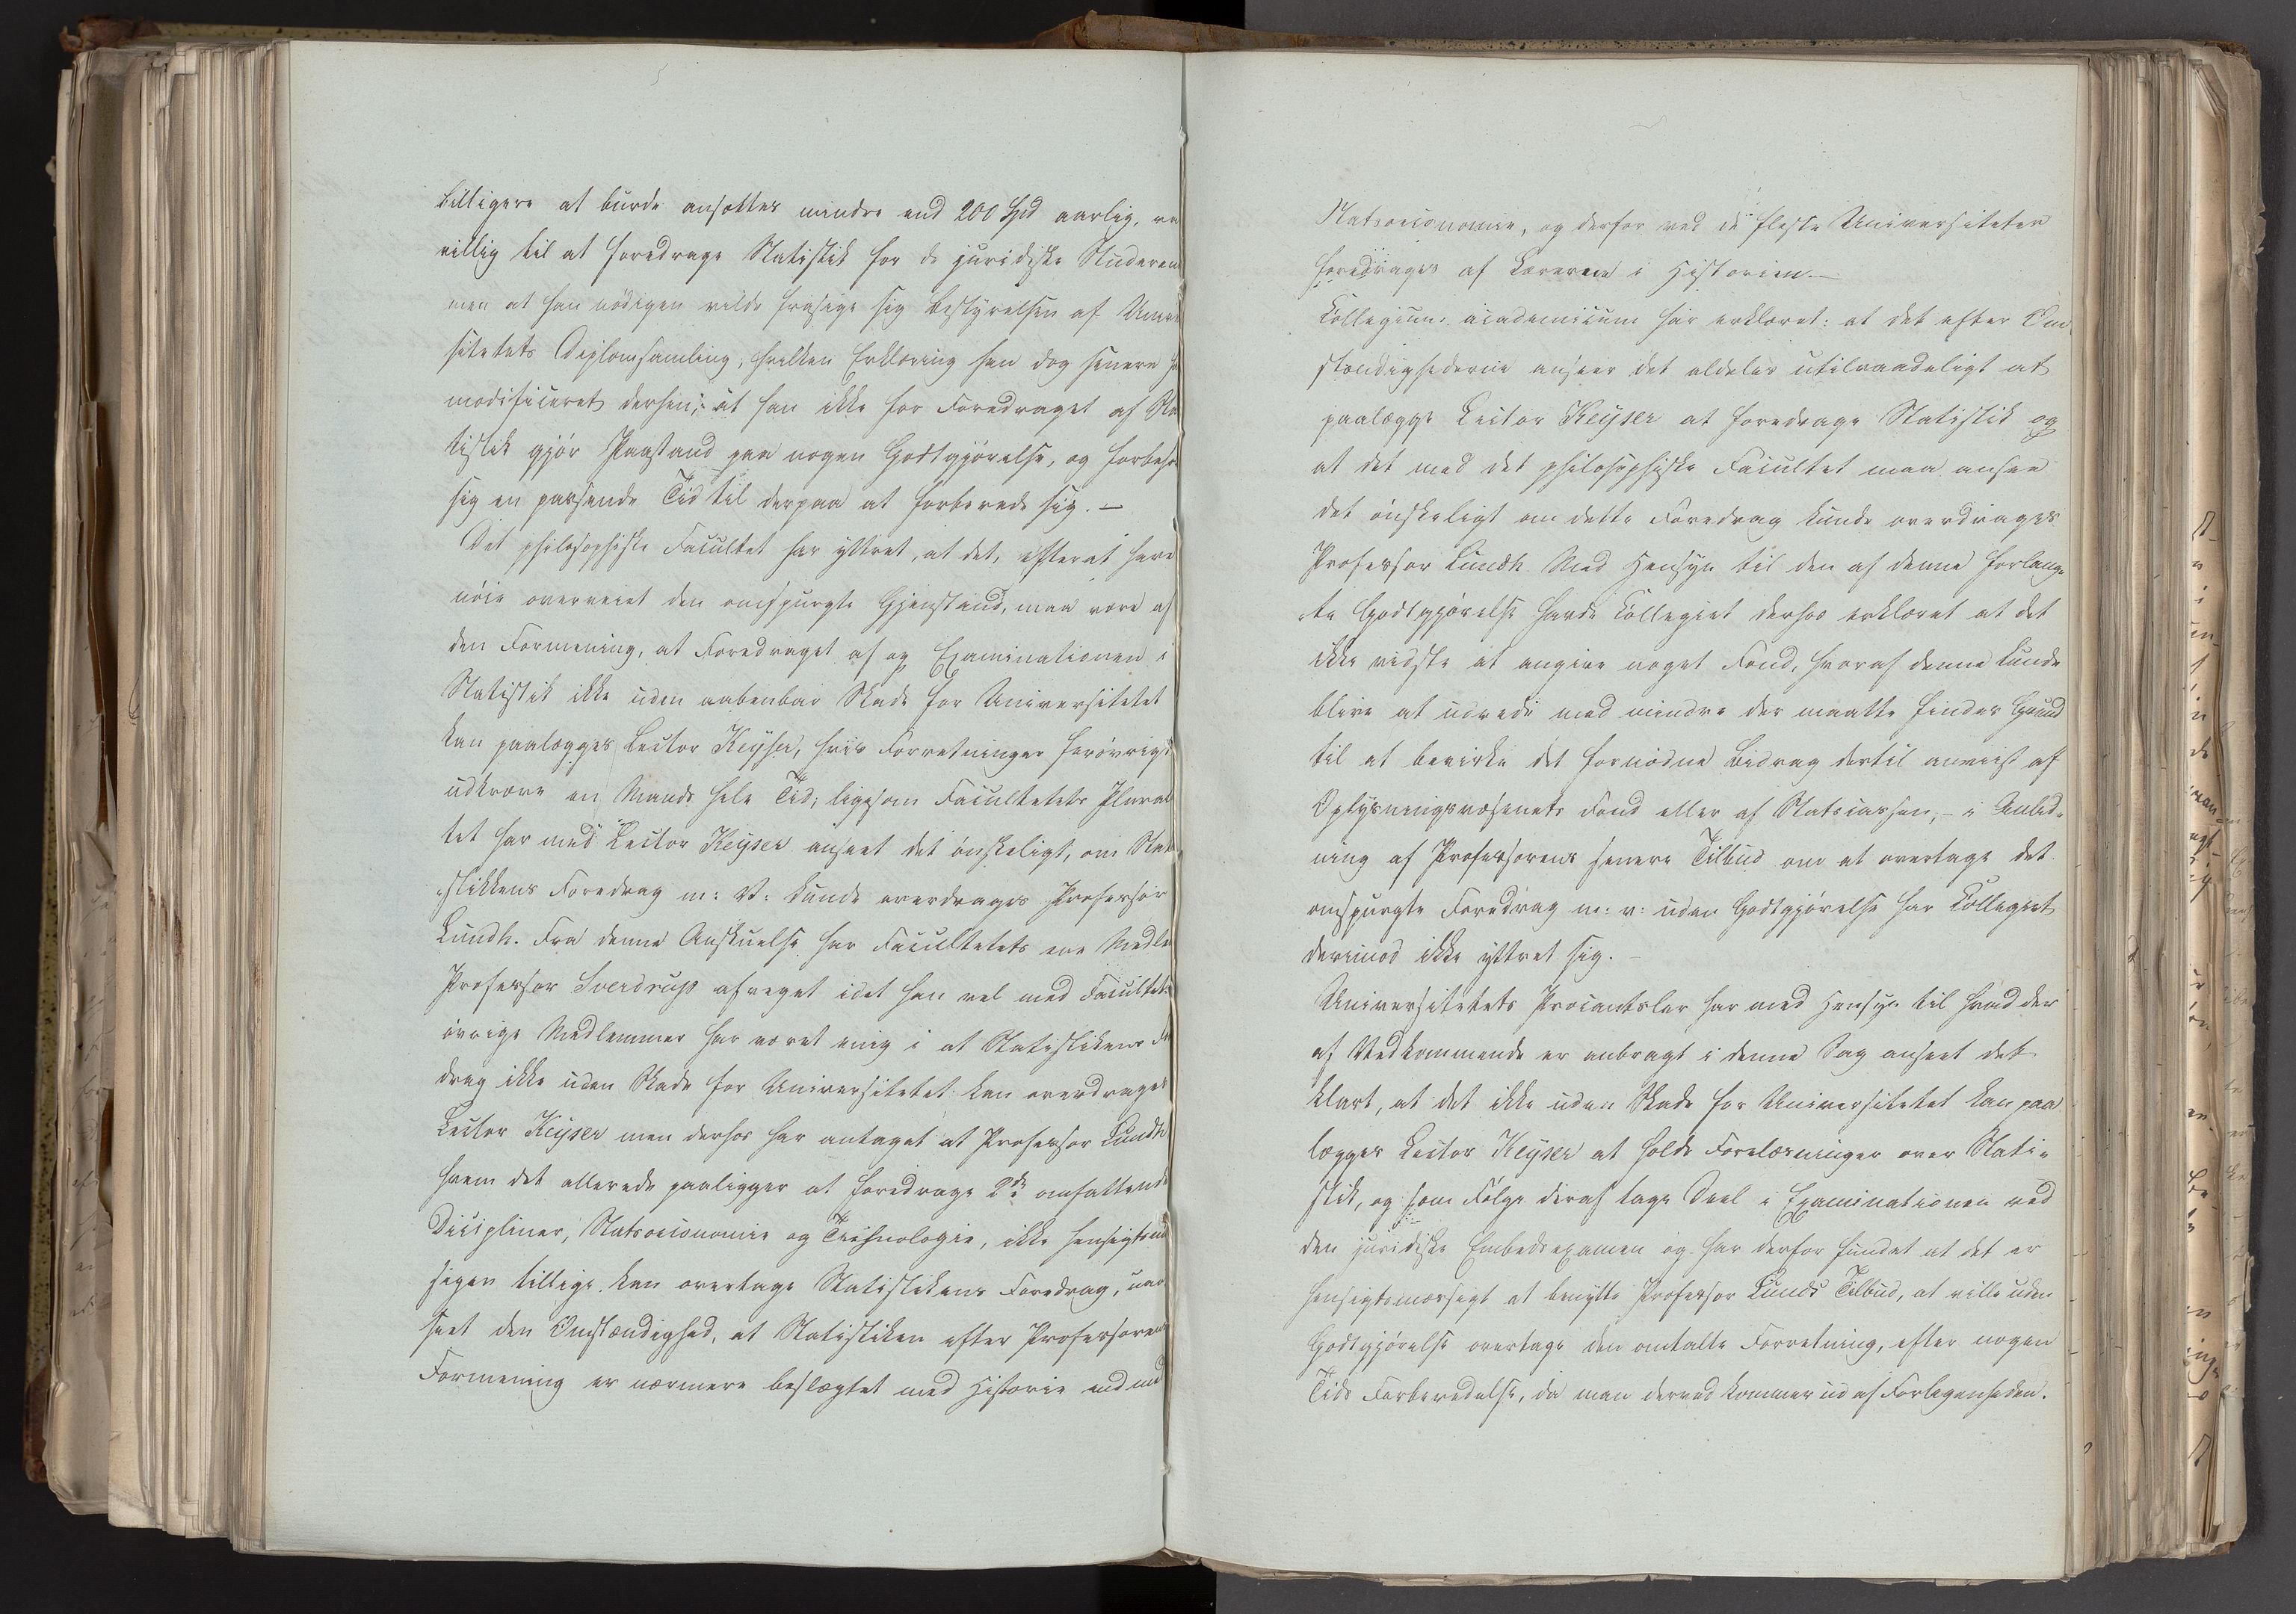 billigere at burde ansættes mindre end 200 Spd aarlig,
villig til at foredrage Statistik for de juridiske Studeren
men at han nødigen vilde frasige sig Bestyrelsen af Univer
sitetets Diplomsamling, hvilken Erklæring han dog senere h
modificeret derhen; at han ikke for Foredraget af Sta
tistik gjør Paastand paa nogen Godtgjørelse, og forbeho
sig en passende Tid til derpaa at forberede sig. —
Det philosophiske Facultet har yttret, at det, efterat have
nøie overveiet den omspurgte Gjenstand, maa være af
den Formening, at Foredraget af og Examinationen i
Statistik ikke uden aabenbar Skade for Universitetet
kan paalægges Lector Keyser, hvis Forretninger forøvrigt
udkræve en Mands hele Tid, ligesom Facultetets Plurali
tet har med Lector Keyser anseet det ønskeligt, om Stati
stikkens Foredrag m: V: kunde overdrages Professor
Lundh. Fra denne Anskuelse har Facultetets ene Medlem
Professor Sverdrup afveget idet han vel med Facultets
øvrige Medlemmer har været enig i at Statistikens Fo
drag ikke uden Skade for Universitetet kan overdrages
Lector Keyser men derhos har antaget at Professor Lundh
hvem det allerede paaligger at foredrage 2de omfattende
Discipliner, Statsoeconomie og Technologie, ikke hensigtsmæ
sigen tillige kan overtage Statistikens Foredrag, uan
seet den Omstændighed, at Statistiken efter Professorens
Formening er nærmere beslægtet med Historie end med
Statsoeconomie, og derfor ved de fleste Universiteter
foredrages af Læreren i Historien. —
Collegium academicum har erklæret: at det efter Om
stændighederne anseer det aldeles utilraadeligt at
paalægge Lector Keyser at foredrage Statistik og
at det med det philosophiske Facultet maa ansee
det ønskeligt om dette Foredrag kunde overdrages
Professor Lundh. Med Hensyn til den af denne forlang-
te Godtgjørelse havde Collegiet derhos erklæret at det
ikke vidste at angive noget Fond, hvoraf denne kunde
blive at udrede med mindre der maatte findes Grund
til at bevirke det fornødne Bidrag dertil anviist af
Oplysningsvæsenets Fond eller af Statscassen, – i Anled-
ning af Professorens senere Tilbud om at overtage det
omspurgte Foredrag m: v: uden Godtgjørelse har Collegiet
derimod ikke yttret sig. –
Universitetets Procantsler har med Hensyn til hvad der
af Vedkommende er anbragt i denne Sag anseet det
klart, at det ikke uden Skade for Universitetet kan paa
lægges Lector Keyser at holde Forelæsninger over Stati-
stik, og som Følge deraf tage Deel i Examinationen ved
den juridiske Embedsexamen og har derfor fundet at det er
hensigtsmæssigt at benytte Professor Lunds Tilbud, at ville uden
Godtgjørelse overtage den omtalte Forretning, efter nogen
Tids Forberedelse, da man derved kommer ud af Forlegenheden.